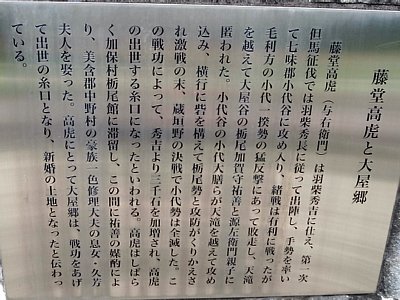 藤堂高虎と大屋郷
藤堂高虎(与右衛門)は羽柴秀吉に仕え、第一次
但馬征伐では羽柴秀長に従って出陣し、手勢を率い
て七味郡小代谷に攻め入り、緒戦は有利に戦ったが
毛利方の小代一揆勢の猛反撃にあって敗走し、天滝
を越えて大屋谷の栃尾加賀守祐善と源左衛門親子に
匿われた。小代谷の小代大膳らが天滝を越えて攻め
込み、横行に砦を構えて栃尾勢と攻防がくりかえさ
れ激戦の末、蔵垣野の決戦で小代勢は全滅した。こ
の戦功によって、秀吉より三千石を加増され、高虎
の出世する糸口になったといわれる。高虎はしばら
く加保村栃尾館に滞留し、この間に祐善の媒酌によ
り、美含郡中野村の豪族一色修理大夫の息女・久芳
夫人を娶った。高虎にとって大屋郷は、戦功をあげ
て出世の糸口となり、新婚の土地となったと伝わっ
ている。